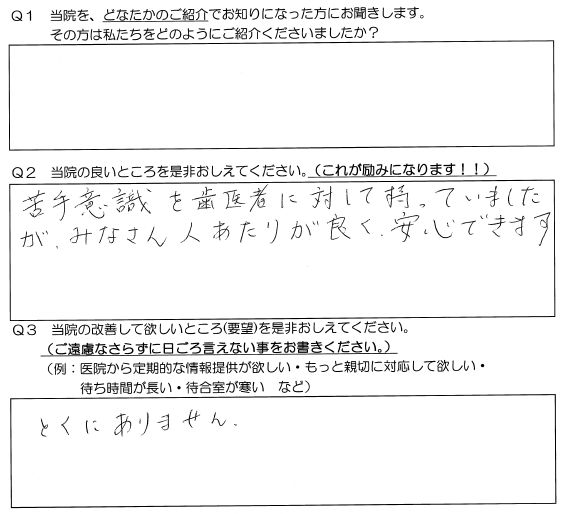 Q1 当院を、どなたかのご紹介でお知りになった方にお聞きします。
その方は私たちをどのようにご紹介くださいましたか？
Q2 当院の良いところを是非おしえてください。(これが励みになります！！)
苦手意識を歯医者に対して持っていました
が、みなさん人あたりが良く、安心できます
Q3 当院の改善して欲しいところ(要望)を是非おしえてください。
(ご遠慮なさらずに日ごろ言えない事をお書きください。)
(例：医院から定期的な情報提供が欲しい・もっと親切に対応して欲しい・
待ち時間が長い・待合室が寒い など)
とくにありません.